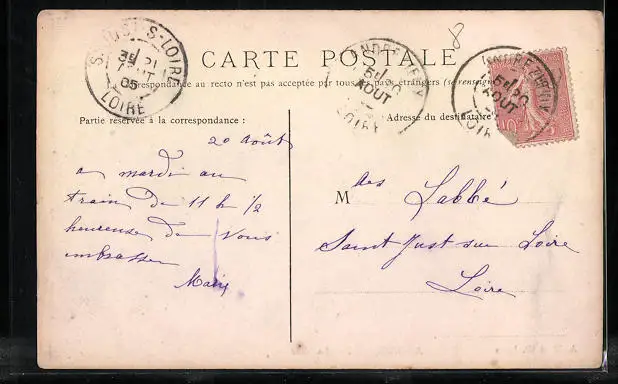 CARTE POSTALE
La correspondance au recto n'est pas acceptée par tous les pays étrangers (se renseigner
Partie réservée à la correspondance :
20 Août
a mardi au
train de 11 h 1/2
heureuse de vous
embrasser
Marie
8
Adresse du destinataire
M des Labbé
Saint Just sur Loire
Loire
ST JUST-S-LOIRE
3E 21
AOUT
05
LOIRE
ANDREZIEUX
5E 20
AOUT
LOIRE
ANDREZIEUX
5E 20
AOUT
LOIRE
10